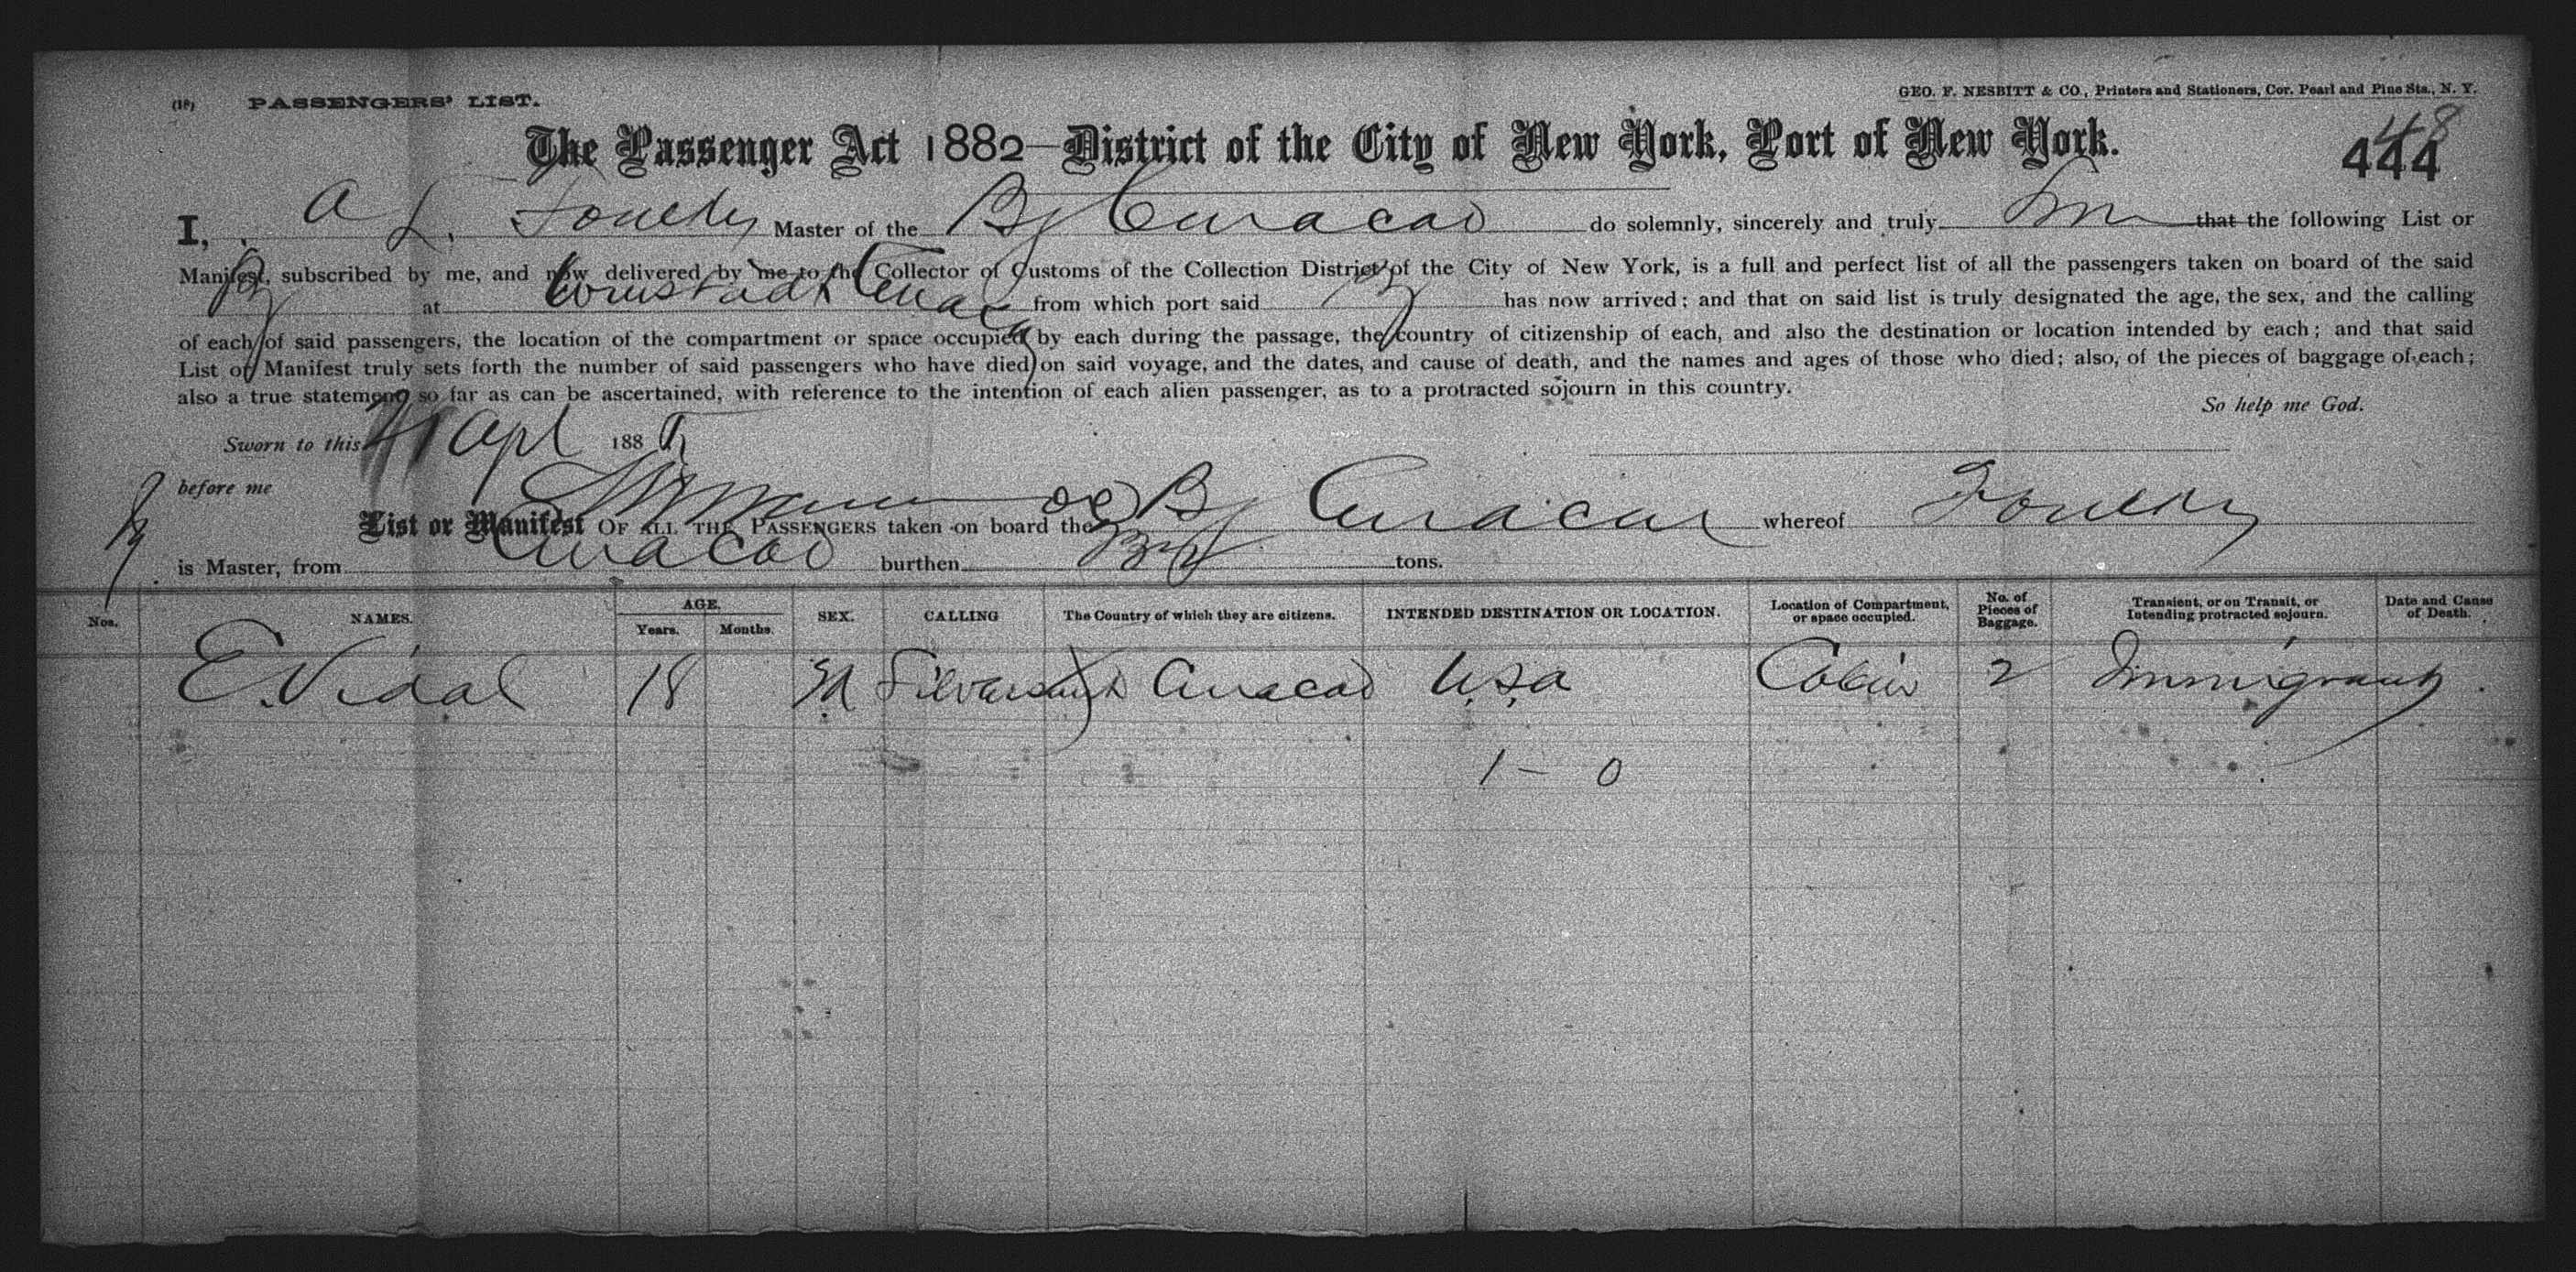 (18) PASSENGERS' LIST. GEO. F. NESBITT & CO., Printers and Stationers, Cor. Pearl and Pine Sts., N. Y.
The Passenger Act 1882—District of the City of New York, Port of New York. 444
48
I, A L. Master of the Curacao do solemnly, sincerely and truly that the following List or
Manifest, subscribed by me, and now delivered by me to the Collector of Customs of the Collection District of the City of New York, is a full and perfect list of all the passengers taken on board of the said
at Curacao from which port said has now arrived; and that on said list is truly designated the age, the sex, and the calling
of each of said passengers, the location of the compartment or space occupied by each during the passage, the country of citizenship of each, and also the destination or location intended by each; and that said
List or Manifest truly sets forth the number of said passengers who have died on said voyage, and the dates, and cause of death, and the names and ages of those who died; also, of the pieces of baggage of each;
also a true statement so far as can be ascertained, with reference to the intention of each alien passenger, as to a protracted sojourn in this country.
So help me God.
Sworn to this Apl 188
before me
List or Manifest OF ALL THE PASSENGERS taken on board the Curacao whereof
is Master, from Curacao burthen tons.
Nos. NAMES. AGE. Years. Months. SEX. CALLING The Country of which they are citizens. INTENDED DESTINATION OR LOCATION. Location of Compartment, or space occupied. No. of Pieces of Baggage. Transient, or on Transit, or Intending protracted sojourn. Date and Cause of Death.
E. Vidal 18 M Silversmith Curacao U.S.A Cabin 2 Immigrant
1 — 0